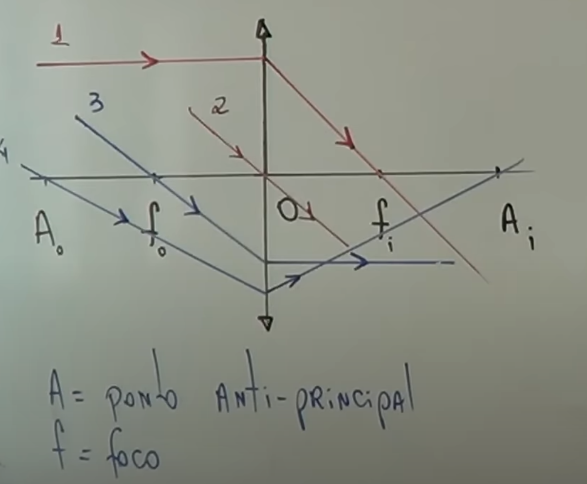 1
2
3
4
O
A₀
f₀
fᵢ
Aᵢ
A = PONTO ANTI-PRINCIPAL
f = foco